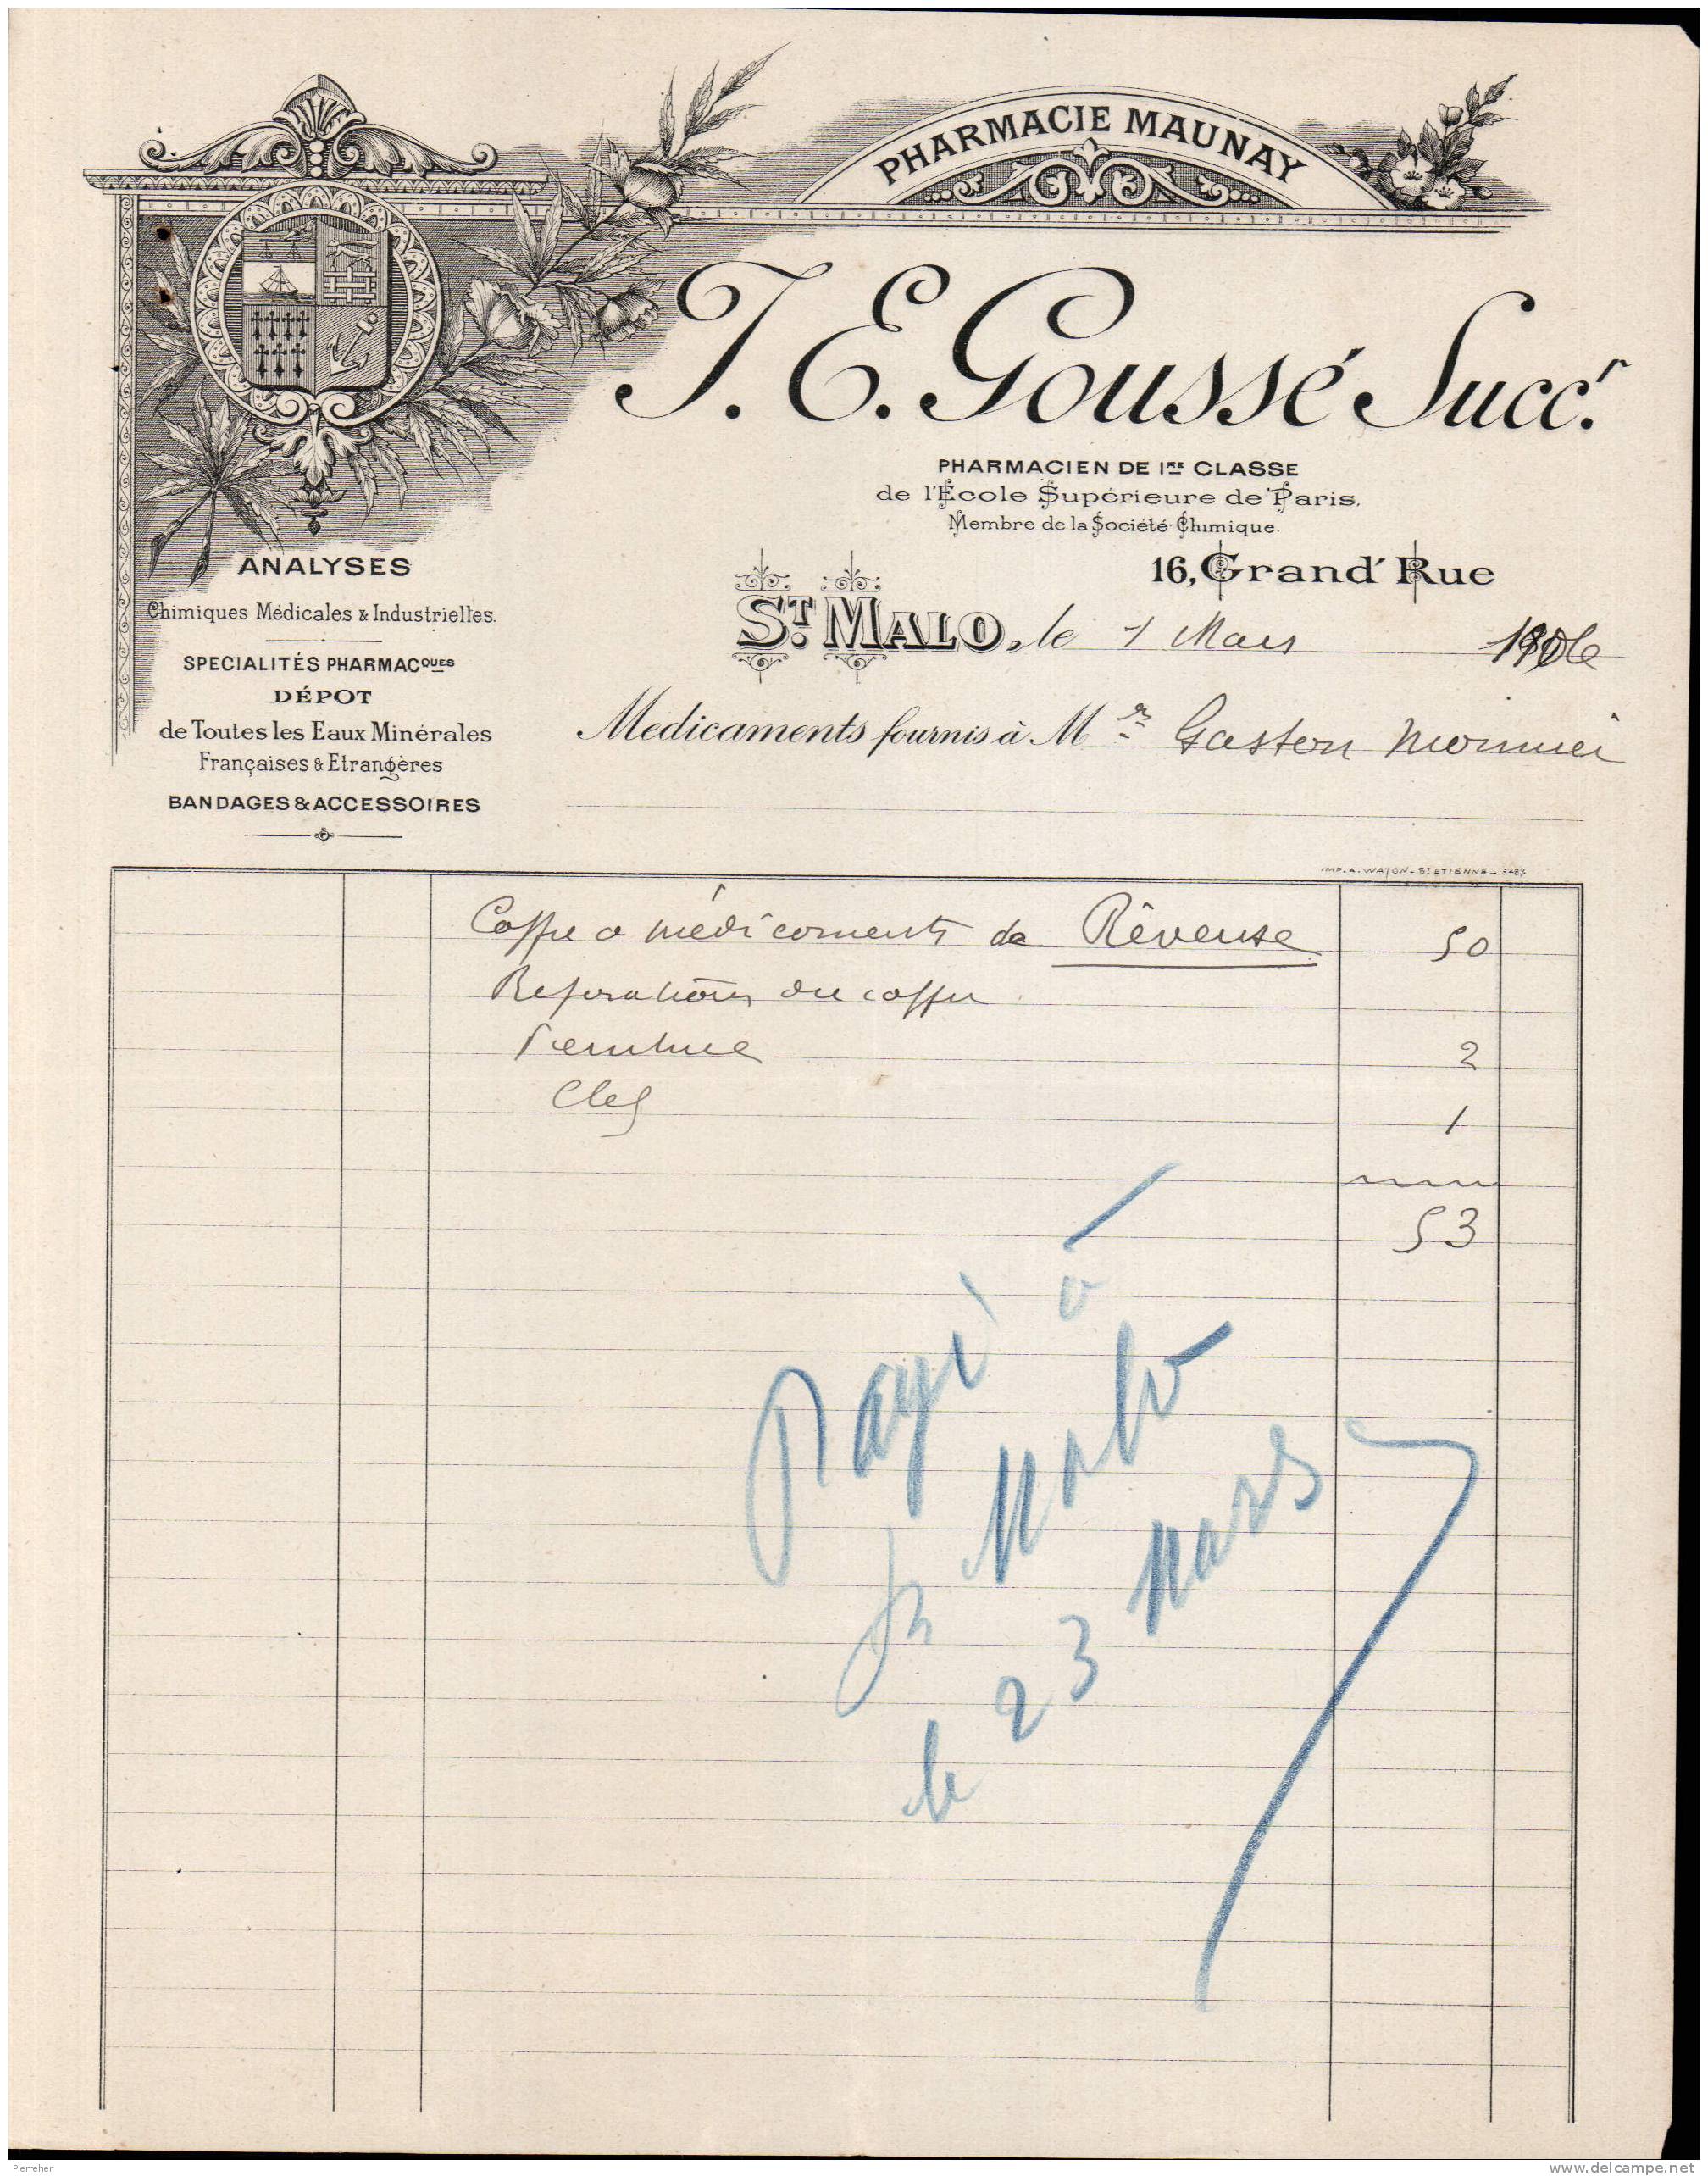 PHARMACIE MAUNAY
J. E. Goussé Succ.r
PHARMACIEN DE 1RE CLASSE
de l'École Supérieure de Paris.
Membre de la Société Chimique.
16, Grand' Rue
ST. MALO, le 1 Mars 1906
Médicaments fournis à Mr Gaston Monnier
ANALYSES
Chimiques Médicales & Industrielles.
SPECIALITÉS PHARMACQUES
DÉPOT
de Toutes les Eaux Minérales
Françaises & Etrangères
BANDAGES & ACCESSOIRES
IMP. A. WATON - ST ETIENNE - 3487
Coffre a médicaments de Rêveuse 50
Reparations du coffre
Peinture 2
Clef 1
53
Payé à
St Malo
le 23 Mars
Pierreher
www.delcampe.net